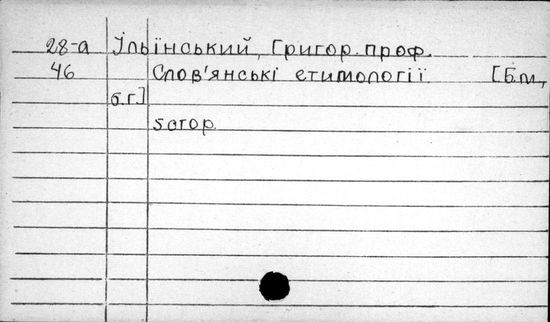 28-а Ільїнський, Григор. проф.
46 Слов'янські етимології. [Б.м,
б.г.]
5стор.